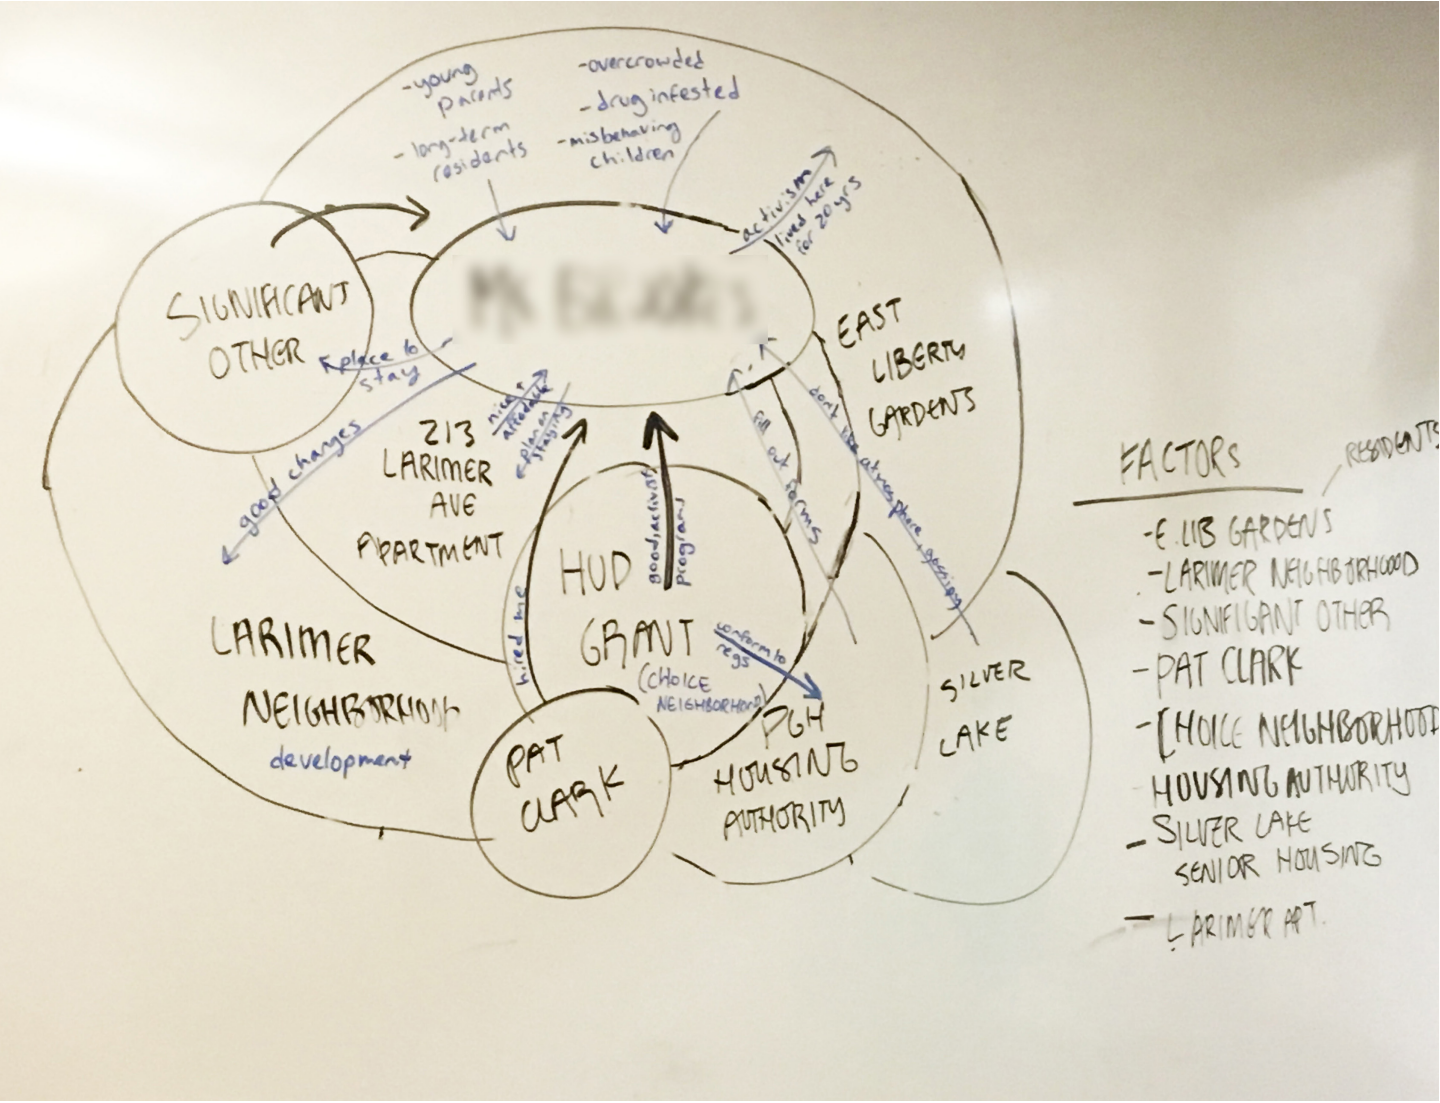 -young
parents
-long-term
residents
-overcrowded
-drug infested
-misbehaving
children
activism
lived here
for 20 yrs
SIGNIFICANT
OTHER
place to
stay
good changes
nice +
affordable
plan on
staying
213
LARIMER
AVE
APARTMENT
EAST
LIBERTY
GARDENS
fill out forms
don't like atmosphere, gossipy
HUD
GRANT
(CHOICE
NEIGHBORHOOD)
good, activist
program
hired me
conform to
regs
LARIMER
NEIGHBORHOOD
development
PAT
CLARK
PGH
HOUSING
AUTHORITY
SILVER
LAKE
FACTORS
RESIDENTS
-E. LIB GARDENS
-LARIMER NEIGHBORHOOD
-SIGNIFIGANT OTHER
-PAT CLARK
-CHOICE NEIGHBORHOOD
HOUSING AUTHORITY
- SILVER LAKE
SENIOR HOUSING
- LARIMER APT.